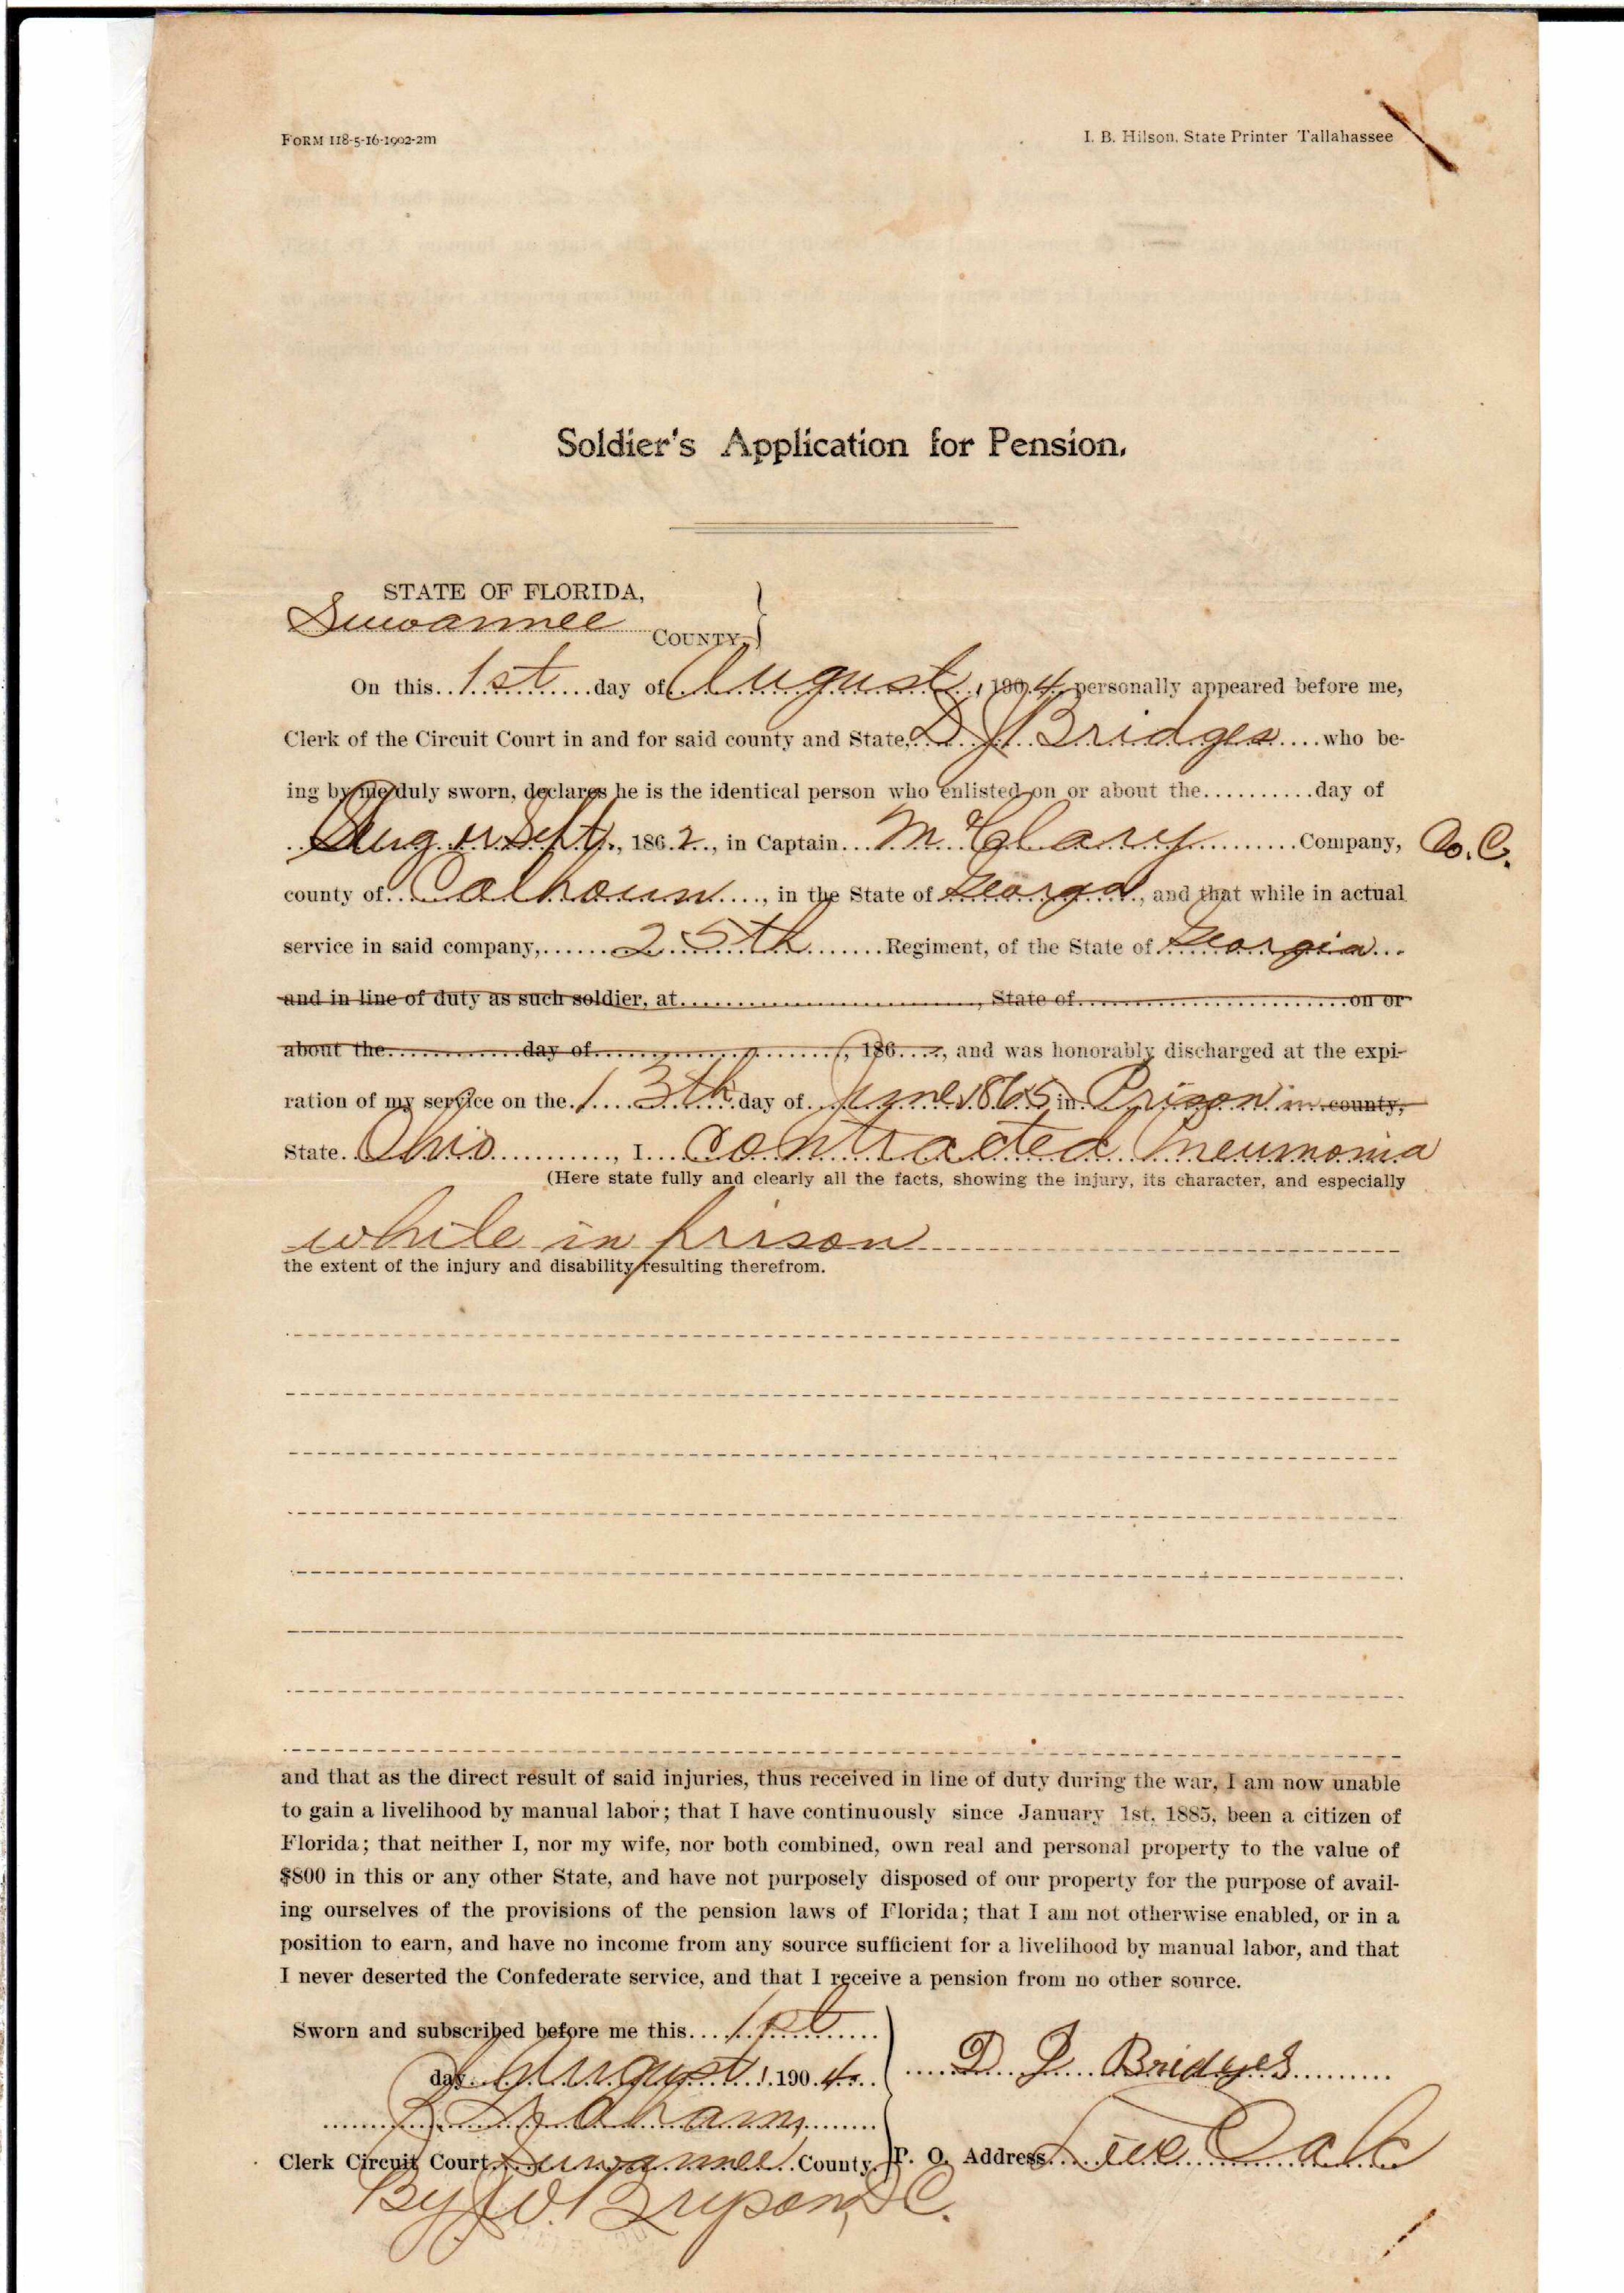 FORM 118-5-16-1902-2m
I. B. Hilson, State Printer Tallahassee
Soldier's Application for Pension.
STATE OF FLORIDA,
Suwannee COUNTY.
On this 1st day of August, 1904, personally appeared before me,
Clerk of the Circuit Court in and for said county and State, D J Bridges who be-
ing by me duly sworn, declares he is the identical person who enlisted on or about the..........day of
Aug or Sept, 1862, in Captain McClary Company, Co. C.
county of Calhoun, in the State of Georga, and that while in actual
service in said company, 25th Regiment, of the State of Georgia
and in line of duty as such soldier, at...................., State of....................on or
about the............day of...................., 186...., and was honorably discharged at the expi-
ration of my service on the 13th day of June 1865 in Prison in county,
State Ohio, I contracted Pneumonia
(Here state fully and clearly all the facts, showing the injury, its character, and especially
while in prison
the extent of the injury and disability resulting therefrom.
and that as the direct result of said injuries, thus received in line of duty during the war, I am now unable
to gain a livelihood by manual labor; that I have continuously since January 1st, 1885, been a citizen of
Florida; that neither I, nor my wife, nor both combined, own real and personal property to the value of
$800 in this or any other State, and have not purposely disposed of our property for the purpose of avail-
ing ourselves of the provisions of the pension laws of Florida; that I am not otherwise enabled, or in a
position to earn, and have no income from any source sufficient for a livelihood by manual labor, and that
I never deserted the Confederate service, and that I receive a pension from no other source.
Sworn and subscribed before me this 1st
day August, 1904
D. J. Bridges
Clerk Circuit Court Suwannee County.
P. O. Address Live Oak
By J W. Bryson, D C.